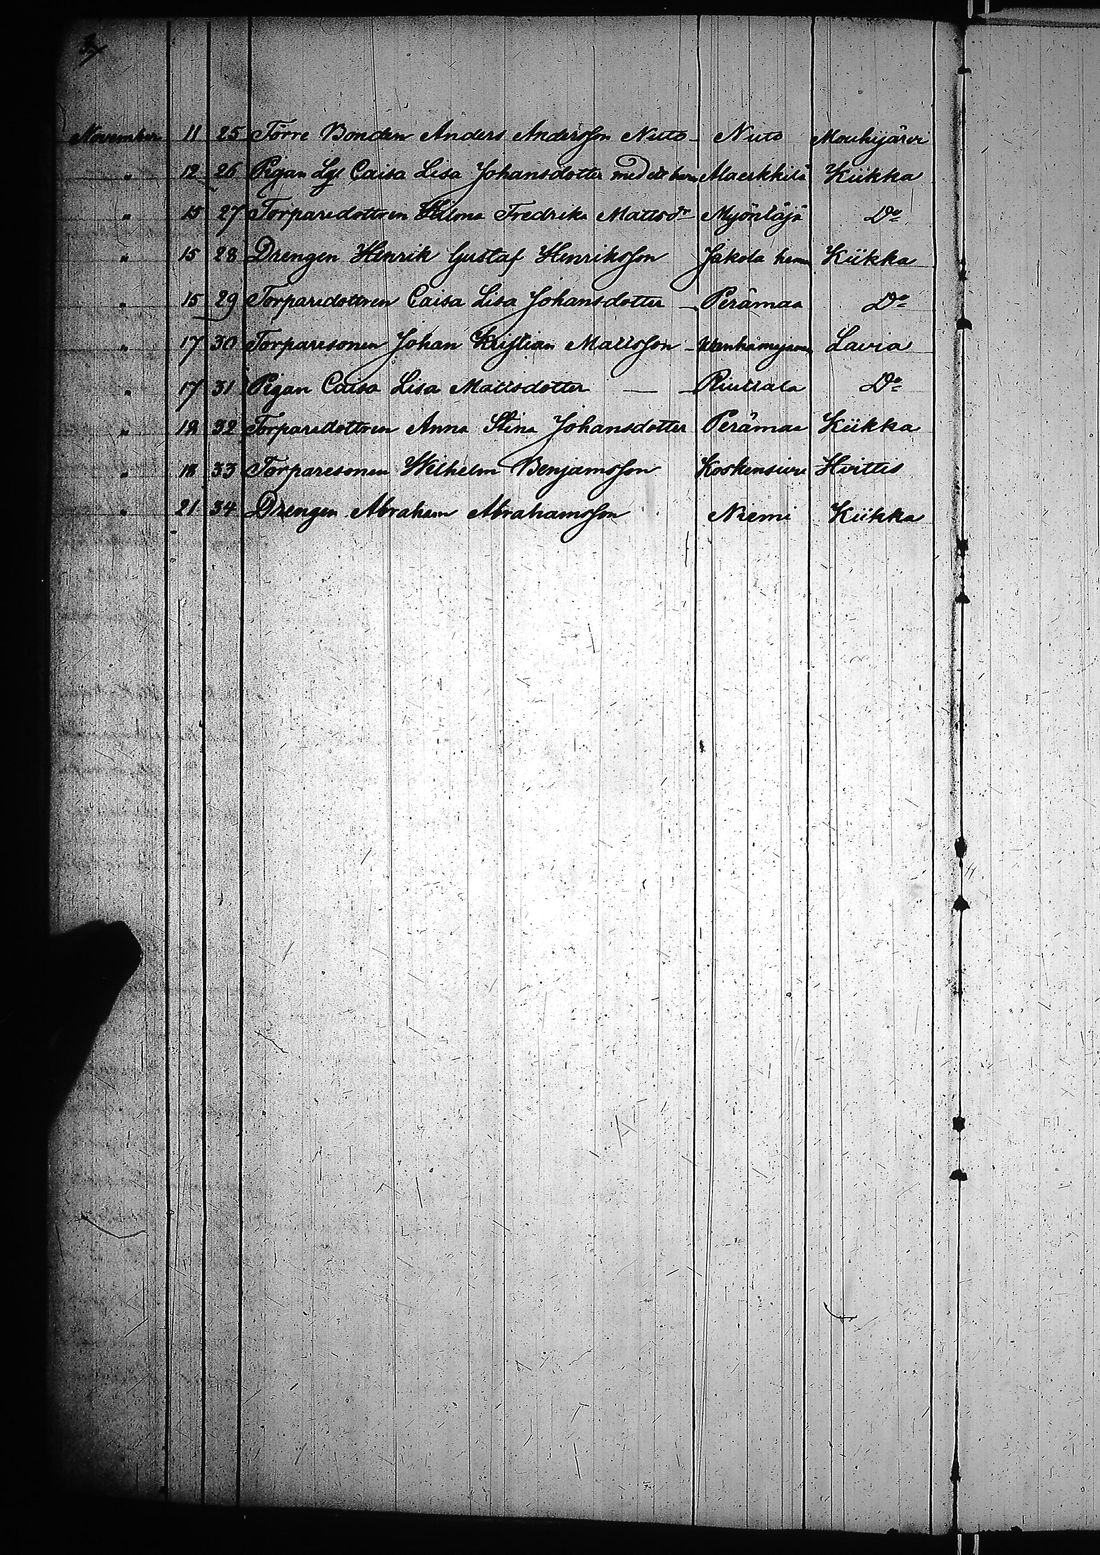 November 11 25 Förre Bonden Anders Andersson Nuto Nuto Mouhijärvi
" 12 26 Pigan Lgs Caisa Lisa Johansdotter med ett barn Maerkkilä Kiikka
" 15 27 Torparedottren Fredrika Mattsdr Myöntäjä Do
" 15 28 Drengen Henrik Gustaf Henriksson Jakola hem Kiikka
" 15 29 Torparedottren Caisa Lisa Johansdotter Perämaa Do
" 17 30 Torparesonen Johan Kristian Mattsson Lavia
" 17 31 Pigan Caisa Lisa Mattsdotter — Riuttala Do
" 18 32 Torparedottren Anna Stina Johansdotter Perämaa Kiikka
" 18 33 Torparesonen Wilhelm Benjamsson Hvittis
" 21 34 Drengen Abraham Abrahamsson Niemi Kiikka